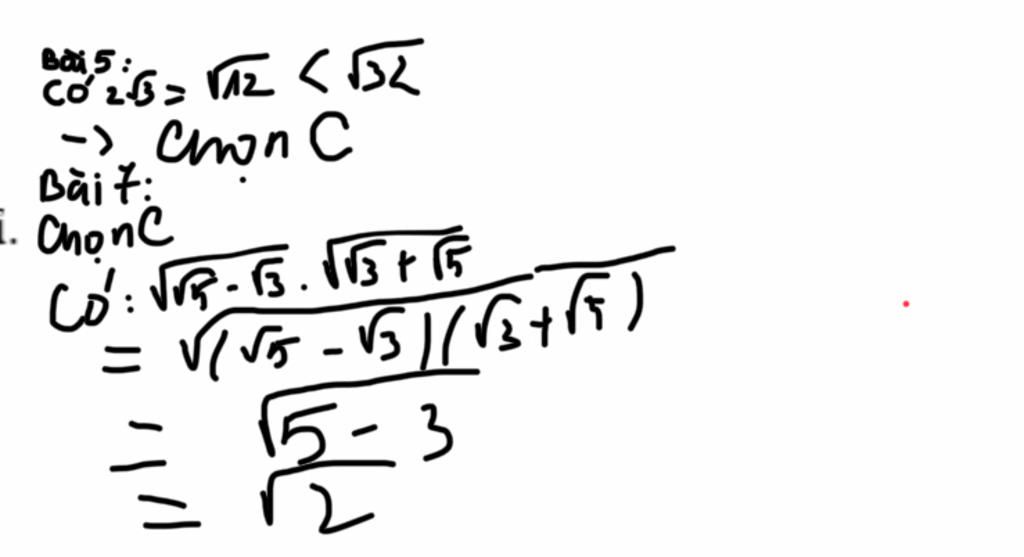 Bài 5:
Có 2√3 = √12 < √32
-> Chọn C
Bài 7:
i. Chọn C
Có: √(√5 - √3) . √(√3 + √5)
= √((√5 - √3)(√3 + √5))
= √(5 - 3)
= √2